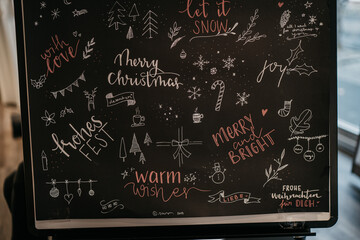 let it
SNOW
with
LOVE
Merry
Christmas
joy
frohes
FEST
MERRY
AND
BRIGHT
warm
wishes
FROHE
WEIHNACHTEN
FÜR DICH.